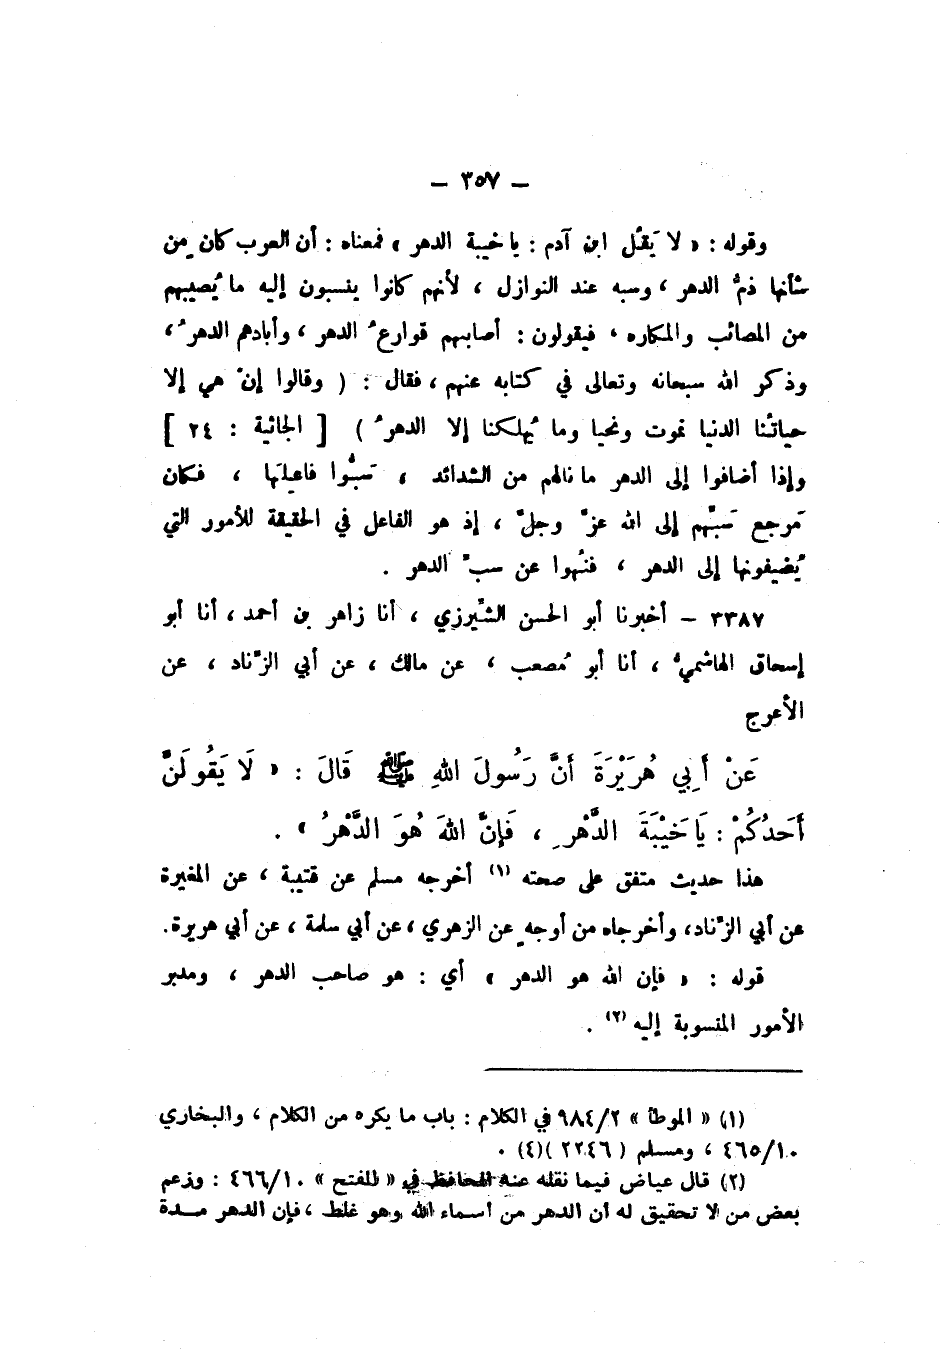 – ٣٥٧ –
وقوله : « لا يَقُل ابن آدم : يا خيبة الدهر » فمعناه : أن العرب كان من
شأنها ذمُّ الدهر ، وسبه عند النوازل ، لأنهم كانوا ينسبون إليه ما يُصيبهم
من المصائب والمكاره ، فيقولون : أصابهم قوارعُ الدهر ، وأبادهم الدهرُ ،
وذكر الله سبحانه وتعالى في كتابه عنهم ، فقال : ( وقالوا إنْ هي إلا
حياتُنا الدنيا نموت ونحيا وما يُهلكنا إلا الدهرُ ) [ الجاثية : ٢٤ ]
وإذا أضافوا إلى الدهر ما نالهم من الشدائد ، سَبُّوا فاعِلَها ، فكان
مَرجع سَبِّهم إلى الله عزَّ وجلَّ ، إذ هو الفاعل في الحقيقة للأمور التي
يُضيفونها إلى الدهر ، فنُهوا عن سبِّ الدهر .
٣٣٨٧ – أخبرنا أبو الحسن الشِّيرزي ، أنا زاهر بن أحمد ، أنا أبو
إسحاق الهاشميُّ ، أنا أبو مُصعب ، عن مالك ، عن أبي الزِّناد ، عن
الأعرج
عَنْ أَبِي هُرَيْرَةَ أَنَّ رَسُولَ اللهِ ﷺ قَالَ : « لَا يَقُولَنَّ
أَحَدُكُمْ : يَا خَيْبَةَ الدَّهْرِ ، فَإِنَّ اللهَ هُوَ الدَّهْرُ » .
هذا حديث متفق على صحته (١) أخرجه مسلم عن قتيبة ، عن المغيرة
عن أبي الزِّناد، وأخرجاه من أوجهٍ عن الزهري ، عن أبي سلمة ، عن أبي هريرة.
قوله : « فإن الله هو الدهر » أي : هو صاحب الدهر ، ومدبر
الأمور المنسوبة إليه (٢) .
(١) « الموطأ » ٩٨٤/٢ في الكلام : باب ما يكره من الكلام ، والبخاري
٤٦٥/١٠ ، ومسلم ( ٢٢٤٦ )(٤) .
(٢) قال عياض فيما نقله عنه الحافظ في « الفتح » ٤٦٦/١٠ : وزعم
بعض من لا تحقيق له أن الدهر من أسماء الله وهو غلط ، فإن الدهر مدة